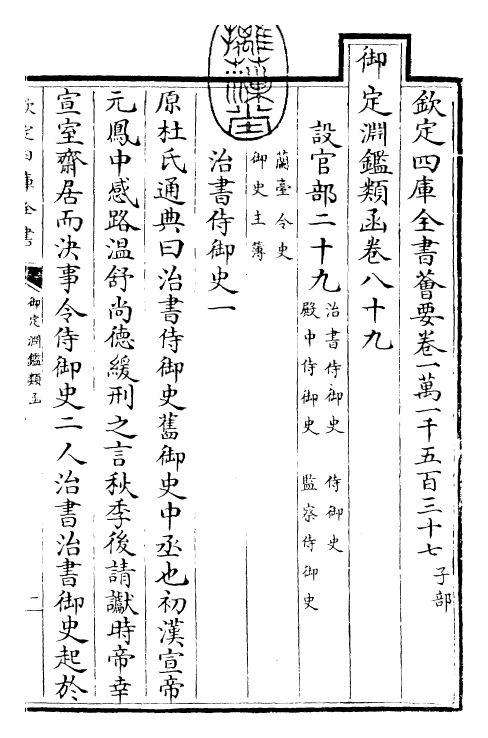 欽定四庫全書薈要卷一萬一千五百三十七 子部
御定淵鑑類函卷八十九
設官部二十九 治書侍御史 侍御史
殿中侍御史 監察侍御史
蘭臺令史
御史主簿
治書侍御史一
原杜氏通典曰治書侍御史舊御史中丞也初漢宣帝
元鳳中感路溫舒尚德緩刑之言秋季後請讞時帝幸
宣室齋居而決事令侍御史二人治書治書御史起於
欽定四庫全書
御定淵鑑類函